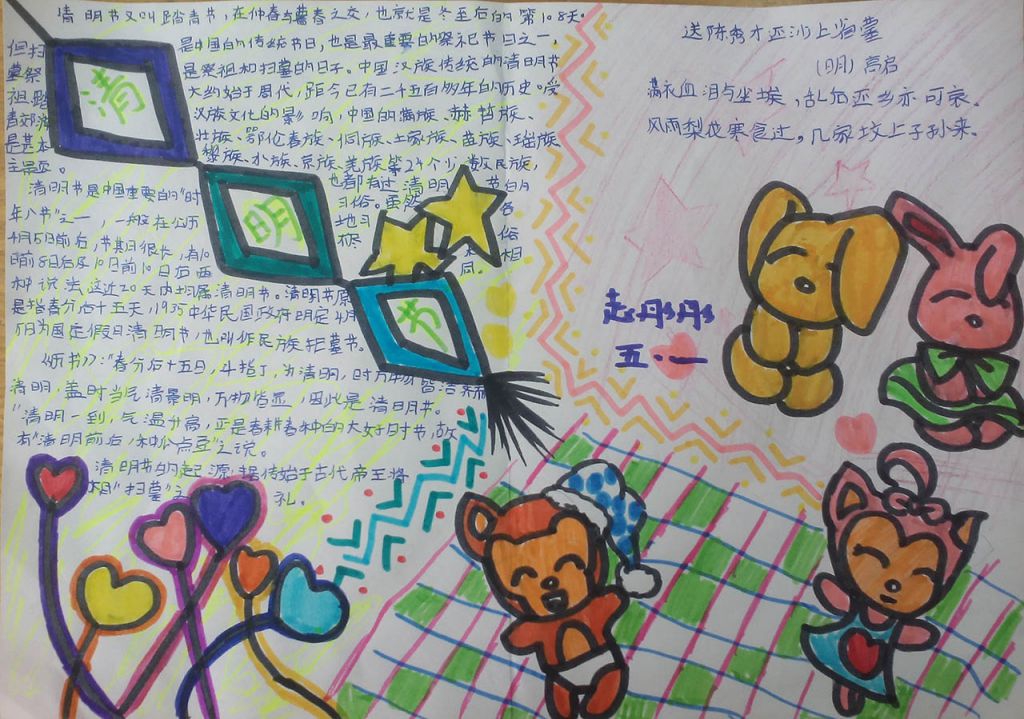 清明节又叫踏青节，在仲春与暮春之交，也就是冬至后的第108天。
是中国的传统节日，也是最重要的祭祀节日之一，
是祭祖和扫墓的日子。中国汉族传统的清明节
大约始于周代，距今已有二千五百多年的历史。受
汉族文化的影响，中国的满族、赫哲族、
壮族、鄂伦春族、侗族、土家族、苗族、瑶族、
黎族、水族、京族、羌族等24个少数民族，
也都有过清明节的
习俗。虽然各
地习俗
不相
同。
但扫
墓祭
祖踏
青郊游
是基本
主题。
清明节是中国重要的"时
年八节"之一，一般在公历
4月5日前后，节期很长，有10
日前8日后及10日前10日后两
种说法，这近20天内均属清明节。清明节原
是指春分后十五天，1935中华民国政府明定4月
5日为国定假日清明节，也叫作民族扫墓节。
《历书》："春分后十五日，斗指丁，为清明，时万物皆洁齐而
清明，盖时当气清景明，万物皆显，因此是清明节。
"清明一到，气温升高，正是春耕春种的大好时节，故
有"清明前后，种瓜点豆"之说。
清明节的起源，据传始于古代帝王将
相"扫墓"之礼。
清
明
节
送陈秀才还沙上省墓
（明）高启
满衣血泪与尘埃，乱后还乡亦可哀。
风雨梨花寒食过，几家坟上子孙来。
赵丹丹
五·一